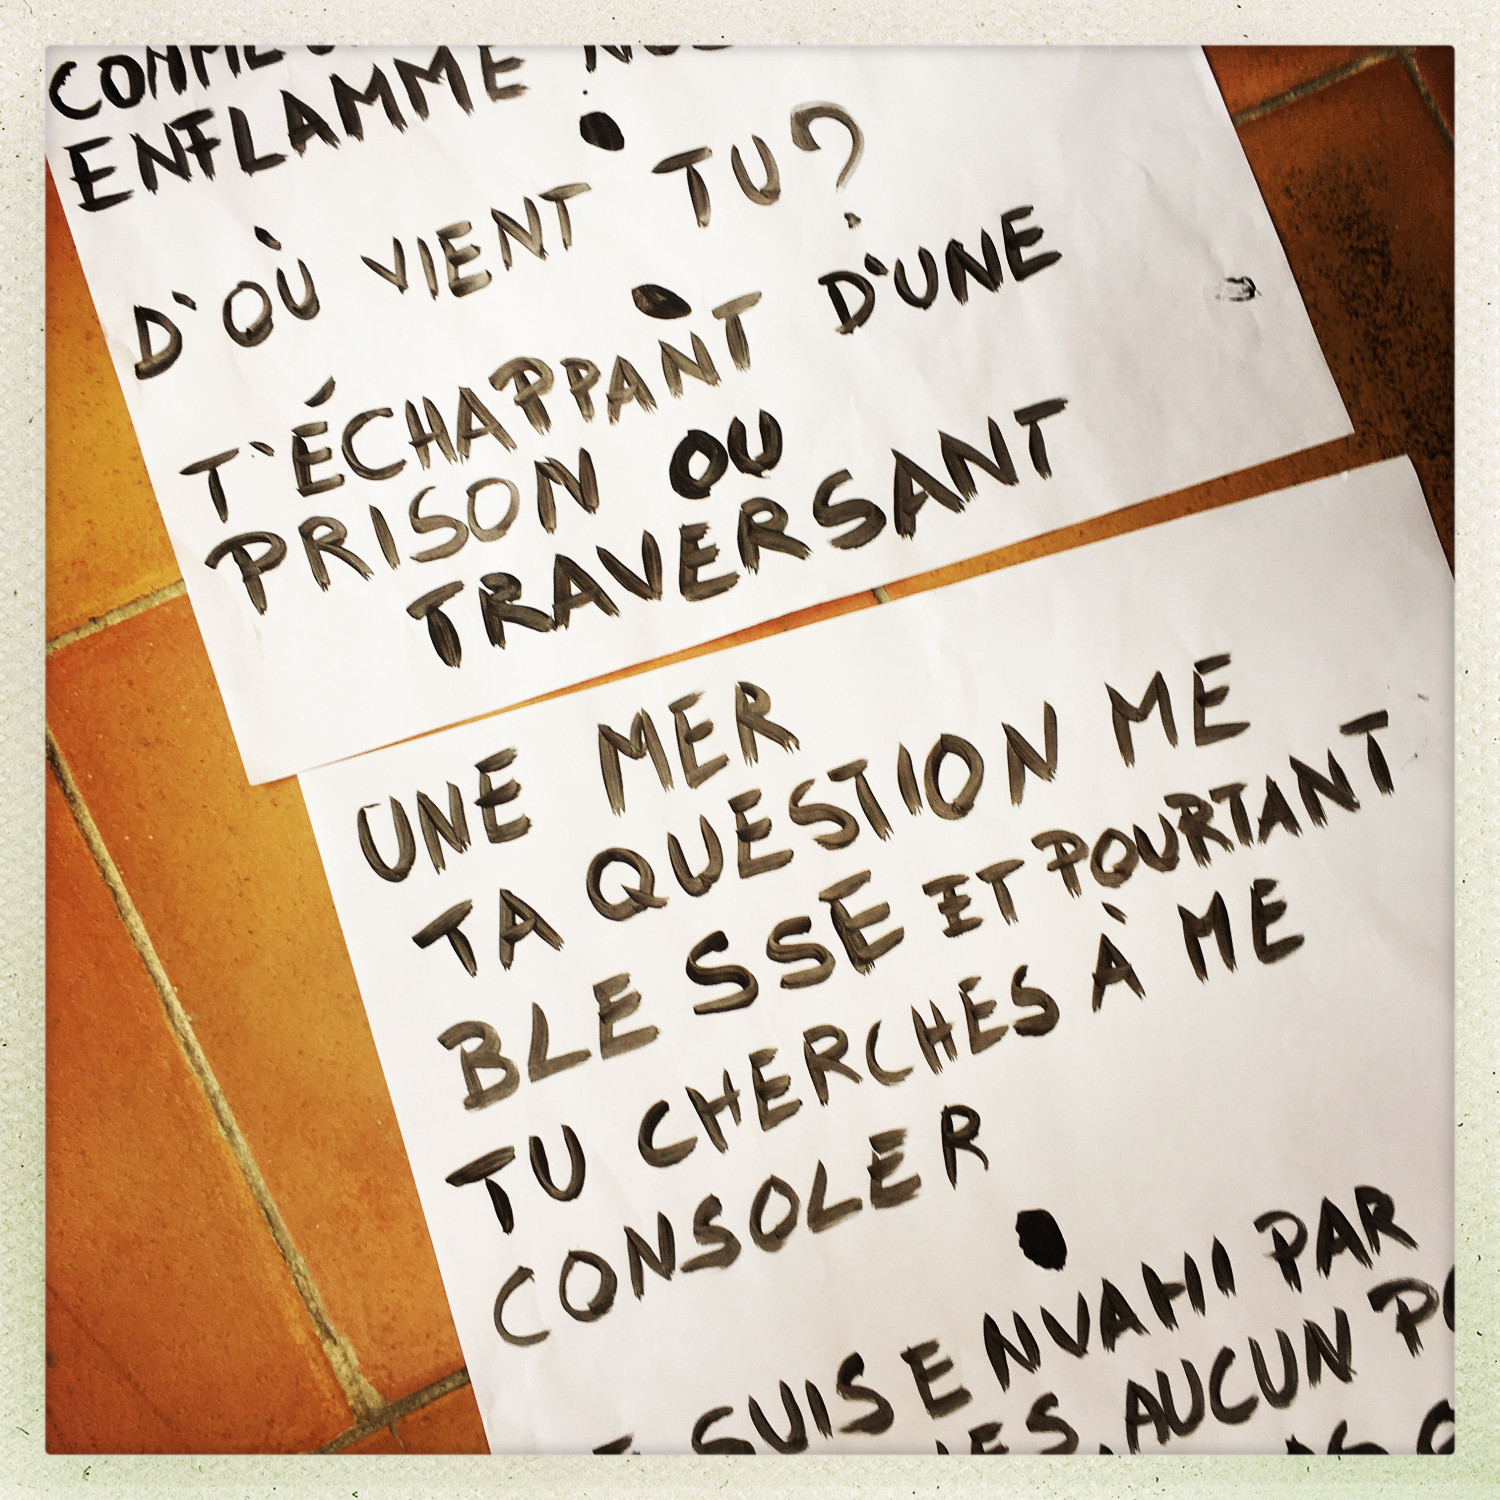 ENFLAMME
D'OÙ VIENT TU?
T'ÉCHAPPANT D'UNE
PRISON OU
TRAVERSANT
UNE MER
TA QUESTION ME
BLESSE ET POURTANT
TU CHERCHES À ME
CONSOLER
SUIS ENVAHI PAR
AUCUN